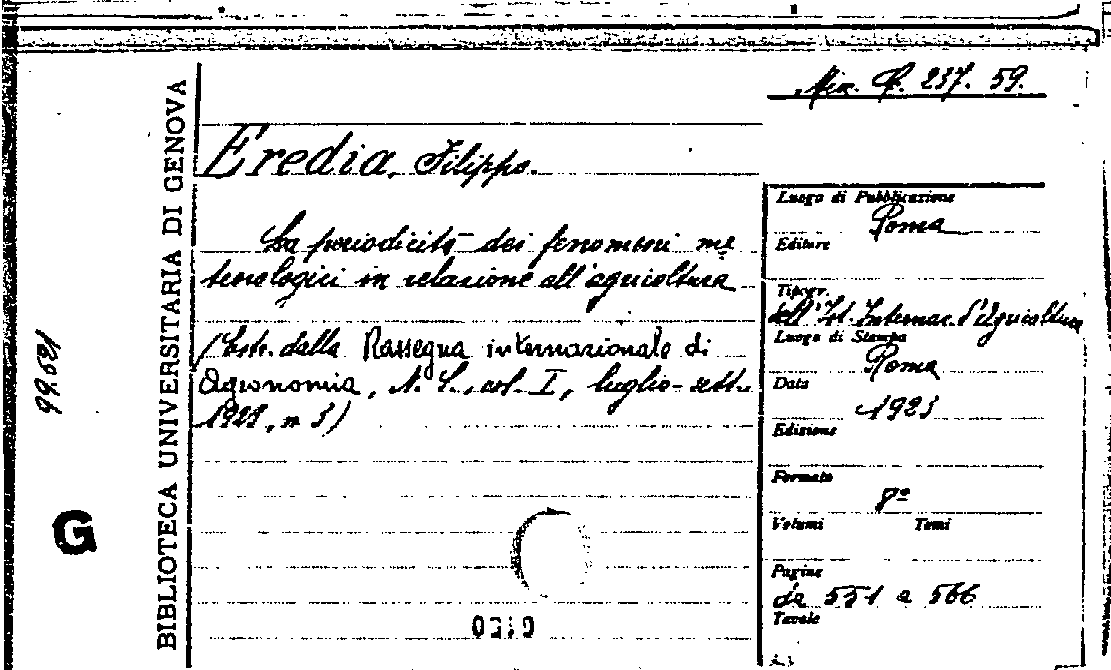 Min. Q. 237. 59.
BIBLIOTECA UNIVERSITARIA DI GENOVA
99.621
G
Eredia, Filippo.
La periodicità dei fenomeni me
teorologici in relazione all'agricoltura
(Estr. dalla Rassegna internazionale di
Agronomia, N. S., vol. I, luglio-sett.
1923, n 3)
Luogo di Pubblicazione
Roma
Editore
Tipogr.
dell'Ist. Internaz. d'Agricoltura
Luogo di Stampa
Roma
Data
1923
Edizione
Formato
8º
Volumi Tomi
Pagine
da 551 a 566
Tavole